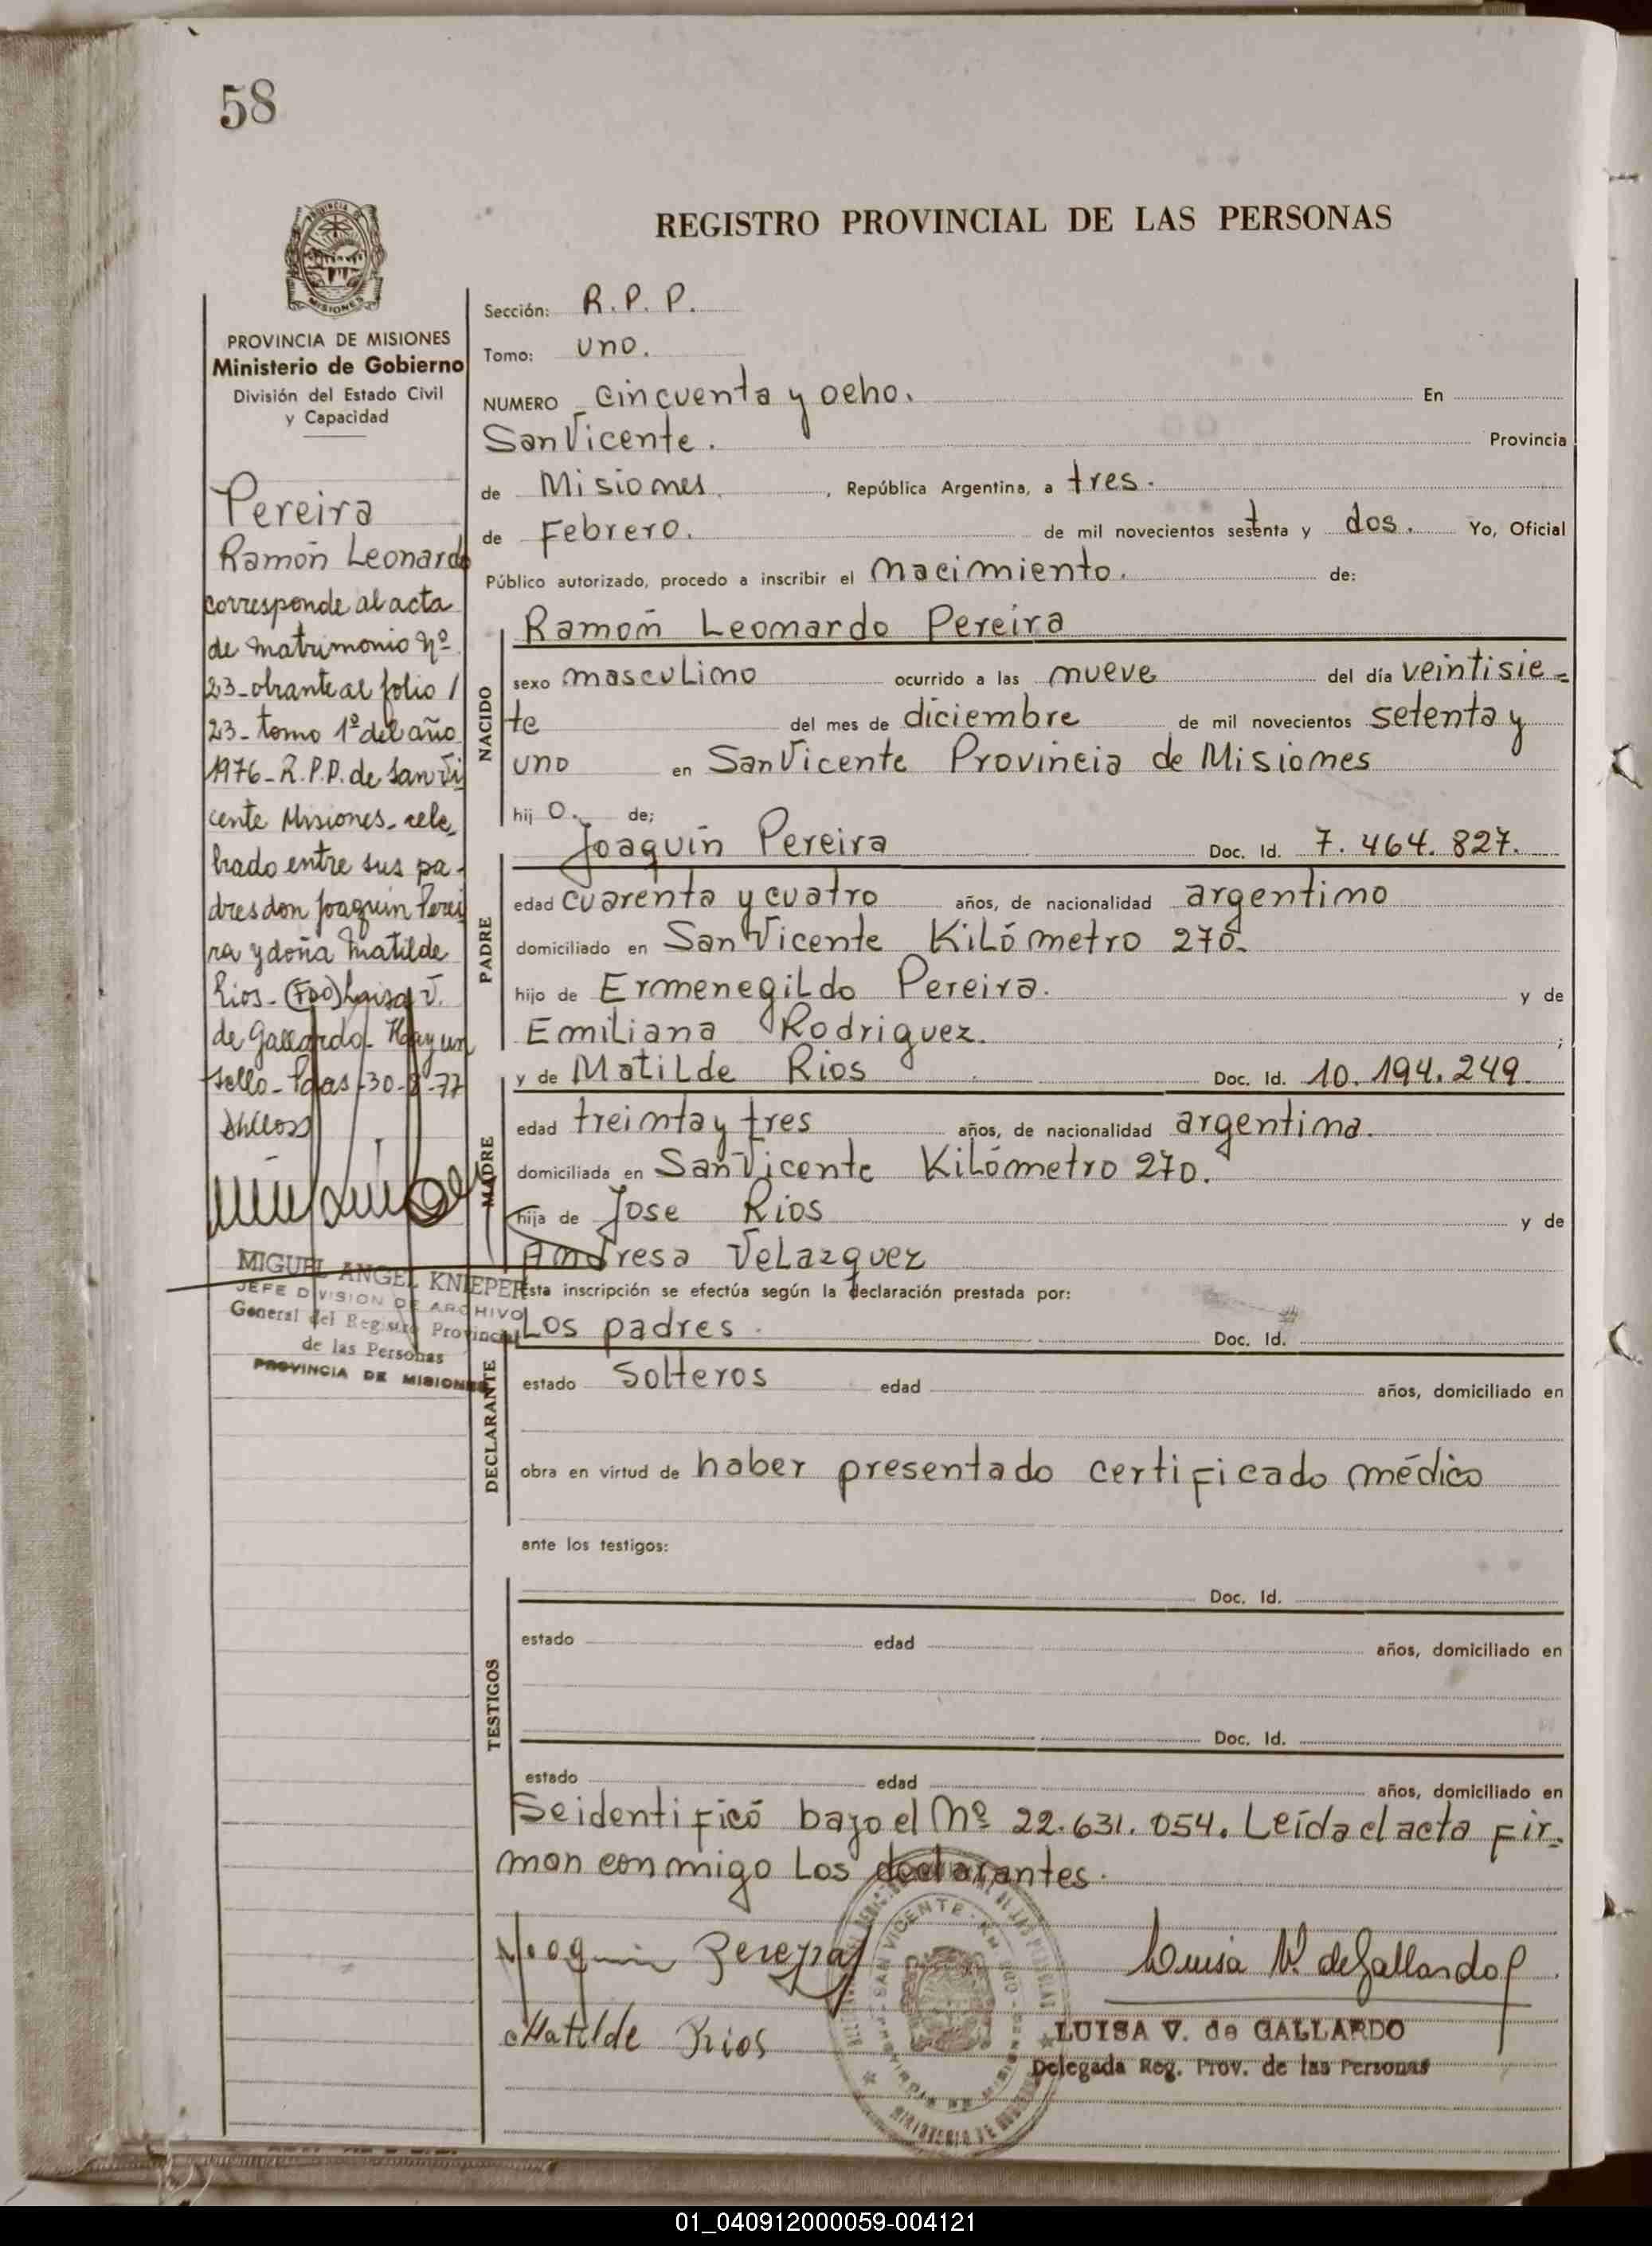 58
REGISTRO PROVINCIAL DE LAS PERSONAS
MISIONES
PROVINCIA DE MISIONES
Ministerio de Gobierno
División del Estado Civil
y Capacidad
Pereira
Ramón Leonardo
corresponde al acta
de matrimonio Nº
23-obrante al folio /
23-tomo 1º del año
1976-R.P.P. de San Vi
cente Misiones-cele-
brado entre sus pa-
dres don Joaquín Perei
ra y doña Matilde
Rios-(FDO) Luisa V.
de Gallardo-Hay un
sello-Pdas-30-8-77
MIGUEL ANGEL KNIEPER
JEFE DIVISION DE ARCHIVO
General del Registro Provincial
de las Personas
PROVINCIA DE MISIONES
Sección: R.P.P.
Tomo: uno.
NUMERO cincuenta y ocho. En
San Vicente. Provincia
de Misiones, República Argentina, a tres.
de Febrero. de mil novecientos setenta y dos. Yo, Oficial
Público autorizado, procedo a inscribir el nacimiento. de:
NACIDO
Ramón Leonardo Pereira
sexo masculino ocurrido a las nueve del día veintisie=
te del mes de diciembre de mil novecientos setenta y
uno en San Vicente Provincia de Misiones
hij o. de;
PADRE
Joaquín Pereira Doc. Id. 7.464.827.
edad cuarenta y cuatro años, de nacionalidad argentino
domiciliado en San Vicente Kilómetro 270.
hijo de Ermenegildo Pereira. y de
Emiliana Rodriguez. ;
MADRE
y de Matilde Rios Doc. Id. 10.194.249.
edad treinta y tres años, de nacionalidad argentina.
domiciliada en San Vicente Kilómetro 270.
hija de Jose Rios y de
Andresa Velazquez
Esta inscripción se efectúa según la declaración prestada por:
DECLARANTE
Los padres. Doc. Id.
estado Solteros edad años, domiciliado en
obra en virtud de haber presentado certificado médico
ante los testigos:
TESTIGOS
Doc. Id.
estado edad años, domiciliado en
Doc. Id.
estado edad años, domiciliado en
Se identificó bajo el Nº 22.631.054. Leída el acta fir=
man conmigo los declarantes.
Joaquin Pereyra
Luisa V. de Gallardo
Matilde Rios
SAN VICENTE
LUISA V. de GALLARDO
Delegada Reg. Prov. de las Personas
01_040912000059-004121